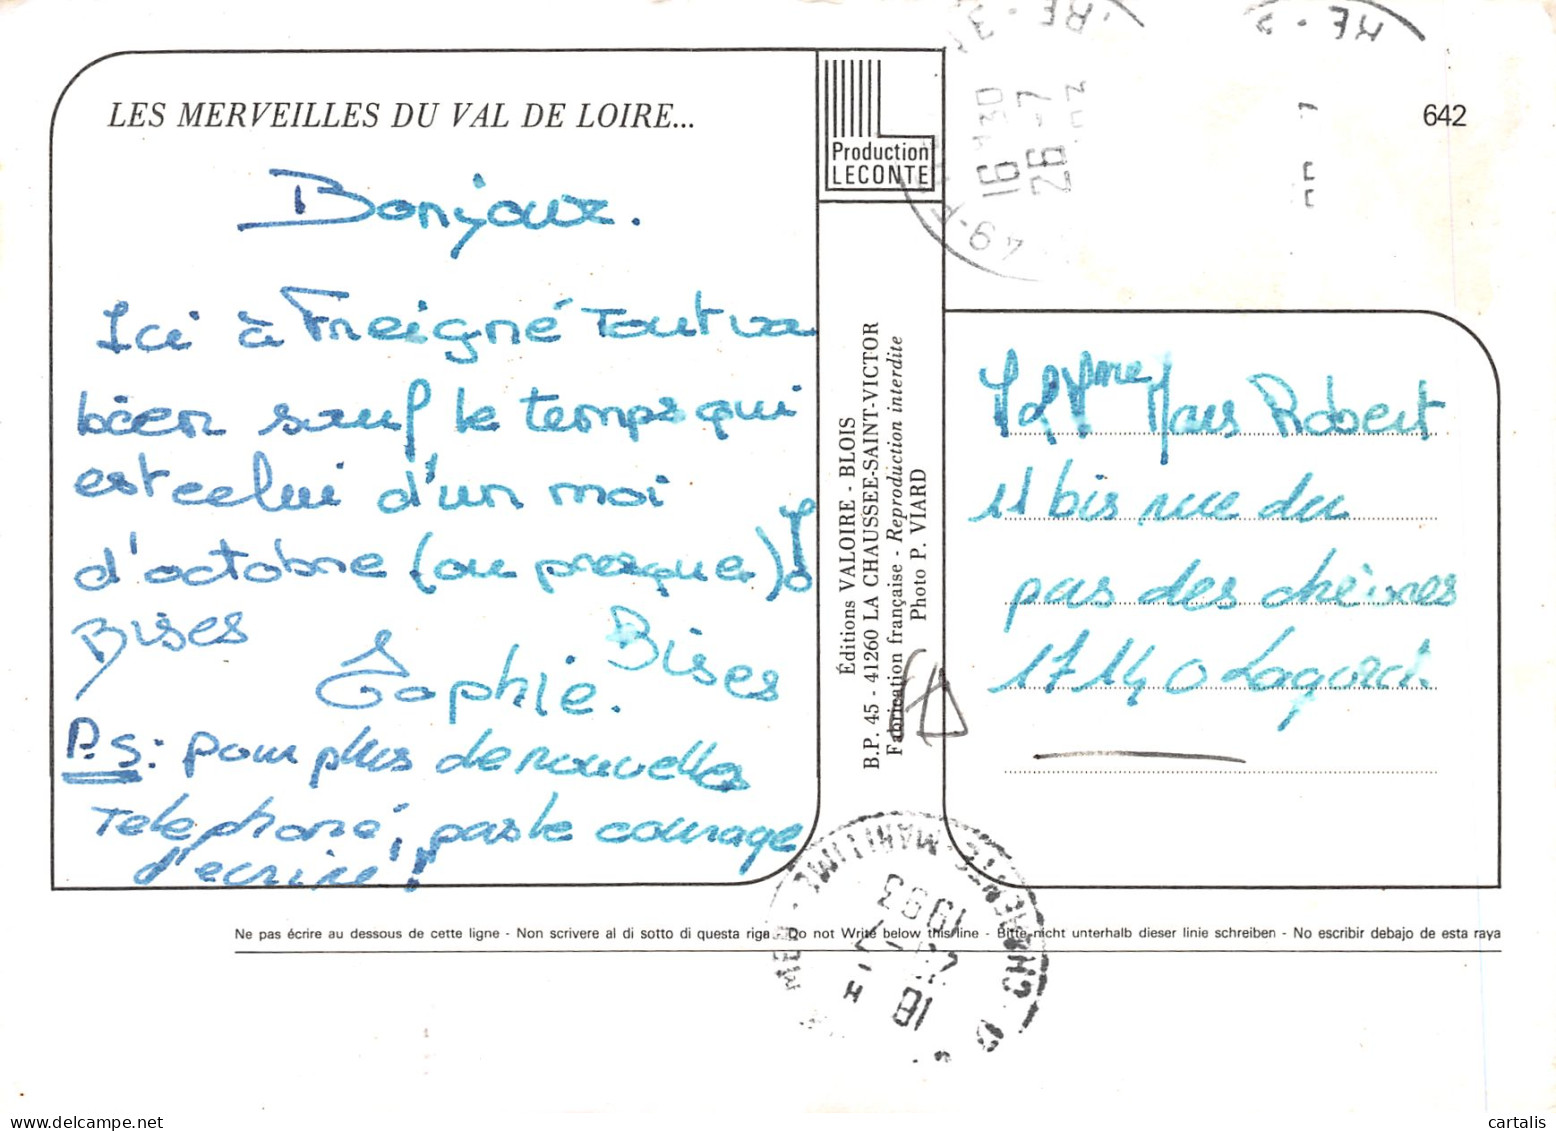 LES MERVEILLES DU VAL DE LOIRE...
Bonjour.
Ici à Freigné tout va
bien sauf le temps qui
est celui d'un moi
d'octobre (ou presque)!
Bises
Sophie.
Bises
P.S: pour plus de nouvelles
telephoné, pas le courage
d'ecrire!
Production
LECONTE
Éditions VALOIRE - BLOIS
B.P. 45 - 41260 LA CHAUSSEE-SAINT-VICTOR
Fabrication française - Reproduction interdite
Photo P. VIARD
16 H30
26-7
49-
642
Robert
11 bis rue du
pas des chèvres
17140 Lagord.
17 CHARENTE-MARITIME
18 H
1993
Ne pas écrire au dessous de cette ligne - Non scrivere al di sotto di questa riga - Do not Write below this line - Bitte nicht unterhalb dieser linie schreiben - No escribir debajo de esta raya
cartalis